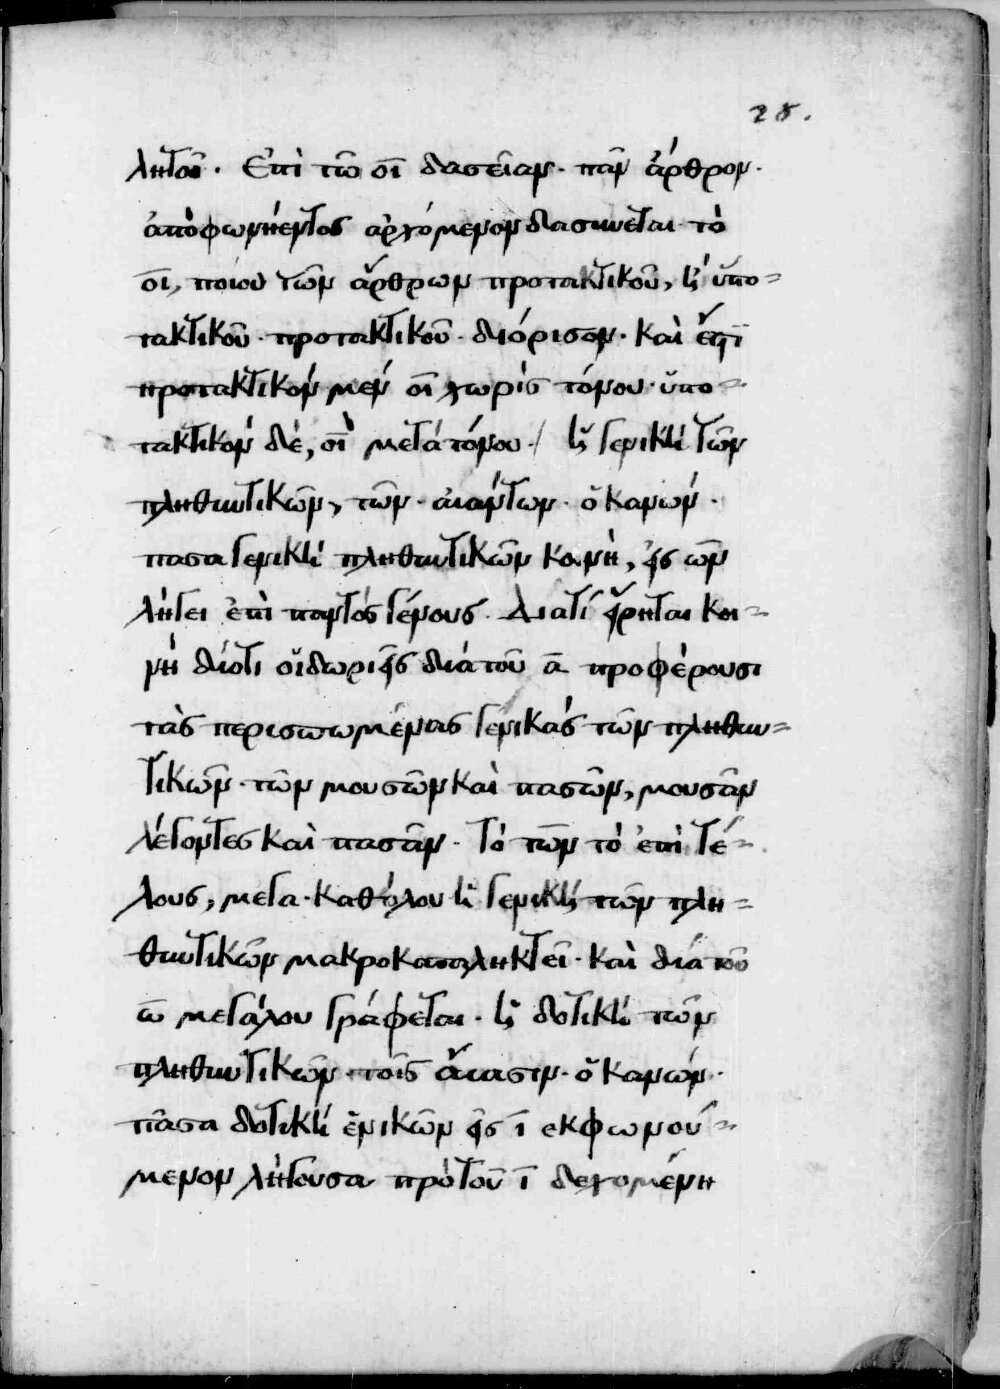 28.
ληπτοῦ. Ἐπὶ τῶ οἱ δασεῖαν. πᾶν ἄρθρον.
ἀπὸ φωνήεντος ἀρχόμενον δασύνεται τὸ
οἱ, ποίου τῶν ἄρθρων προτακτικοῦ, ἢ ὑπο-
τακτικοῦ. προτακτικοῦ. διόρισον. καὶ ἔστι
προτακτικὸν μὲν οἱ χωρὶς τόνου. ὑπο-
τακτικὸν δὲ, οἳ μετὰ τόνου. / ἡ γενικὴ τῶν
πληθυντικῶν, τῶν. αἰάντων. ὁ κανών.
πασα γενικὴ πληθυντικῶν κοινὴ, εἰς ων
λήγει ἐπὶ παντὸς γένους. Διατί εἴρηται κοι-
νὴ διότι οἱ δωριεῖς διὰ τοῦ α προφέρουσι
τὰς περισπωμένας γενικὰς τῶν πληθυν-
τικῶν. τῶν μουσῶν καὶ πασῶν, μουσᾶν
λέγοντες καὶ πασᾶν. Τὸ των τὸ ἐπὶ τέ-
λους, μέγα. καθόλου ἡ γενικὴ τῶν πλη-
θυντικῶν μακροκαταληκτεῖ. καὶ διὰ τοῦ
ω μεγάλου γράφεται. ἡ δοτικὴ τῶν
πληθυντικῶν. τοῖς αἴασιν. ὁ κανών.
πᾶσα δοτικὴ ἑνικῶν εἰς ι εκφωνού-
μενον λήγουσα πρὸ τοῦ ι δεχομένη